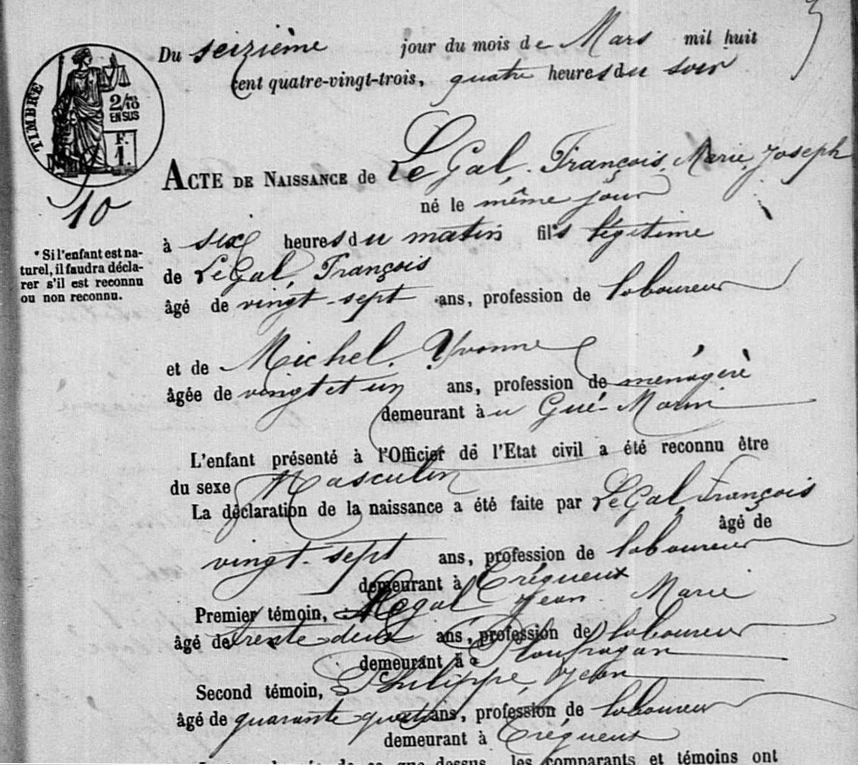 Du seizième jour du mois de Mars mil huit
cent quatre-vingt-trois, quatre heures du soir
TIMBRE
2/10
EN SUS
F.
1.
10
ACTE DE NAISSANCE de Le Gal, François, Marie, Joseph
né le même jour
à six heures du matin fils légitime
* Si l'enfant est na-
turel, il faudra décla-
rer s'il est reconnu
ou non reconnu.
de Le Gal, François
âgé de vingt-sept ans, profession de laboureur
et de Michel, Yvonne
âgée de vingt et un ans, profession de ménagère
demeurant au Gué-Morin
L'enfant présenté à l'Officier de l'Etat civil a été reconnu être
du sexe Masculin
La déclaration de la naissance a été faite par Le Gal, François
âgé de
vingt-sept ans, profession de laboureur
demeurant à Trégueux
Premier témoin, Le gal Jean Marie
âgé de trente-deux ans, profession de laboureur
demeurant à Ploufragan
Second témoin, Philippe, Jean
âgé de quarante-quatre ans, profession de laboureur
demeurant à Trégueux
ce que dessus, les comparants et témoins ont